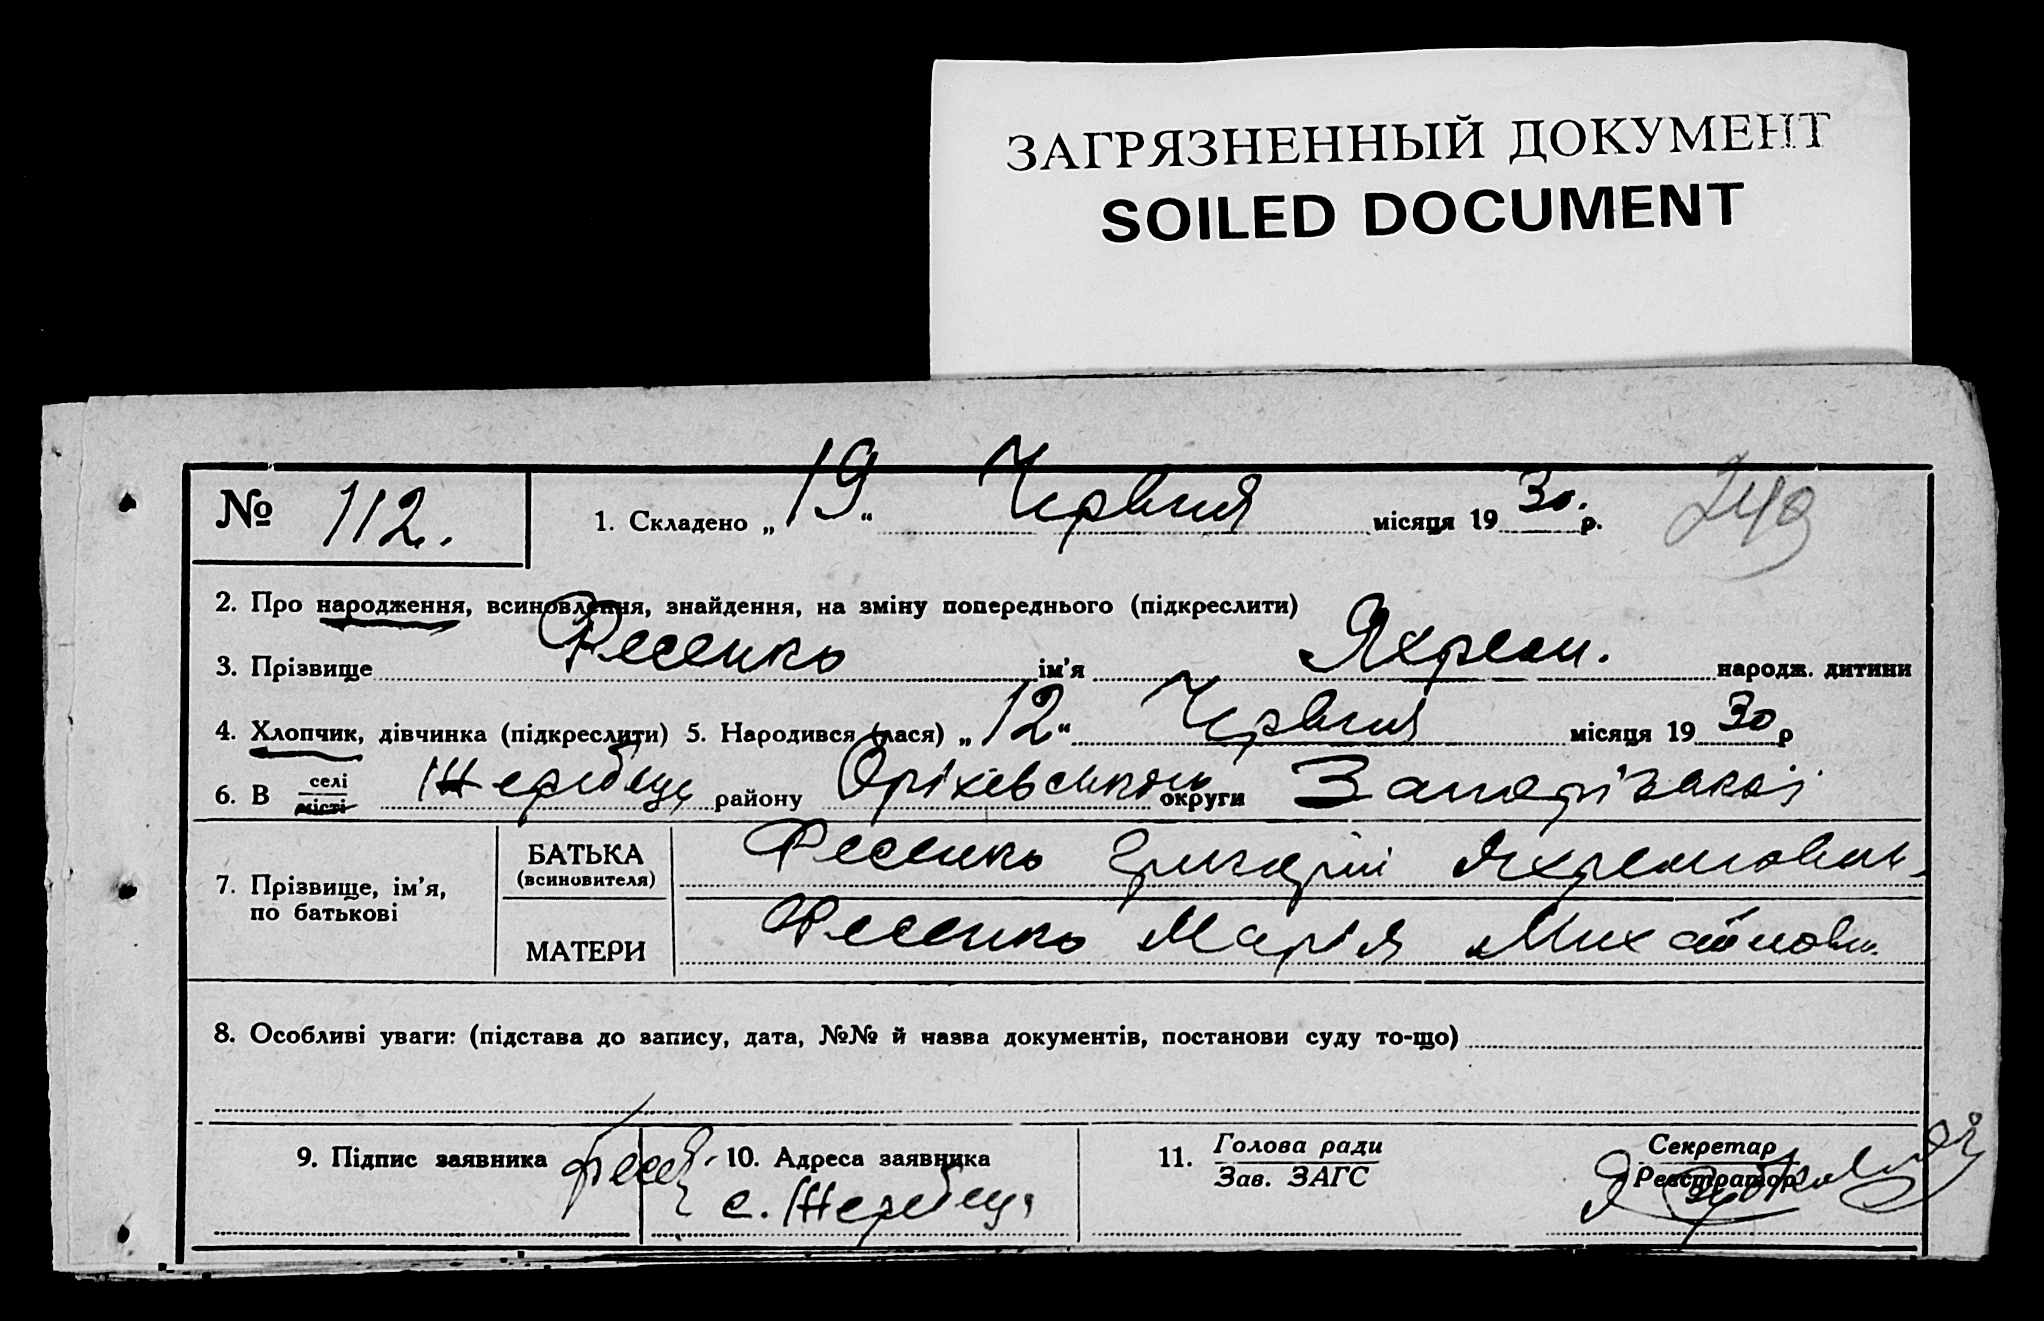 ЗАГРЯЗНЕННЫЙ ДОКУМЕНТ
SOILED DOCUMENT
№ 112.
1. Складено „19“ Червня місяця 1930. р.
249
2. Про народження, всиновлення, знайдення, на зміну попереднього (підкреслити)
3. Прізвище Фесенко ім'я Яхрем. народж. дитини
4. Хлопчик, дівчинка (підкреслити) 5. Народився (лася) „12“ Червня місяця 1930 р
6. В селі місті Жеребець району Оріхівського округи Запорізької
7. Прізвище, ім'я, по батькові
БАТЬКА (всиновителя) Фесенко Григорій Яхремович
МАТЕРИ Фесенко Марія Михайловн.
8. Особливі уваги: (підстава до запису, дата, №№ й назва документів, постанови суду то-що)
9. Підпис заявника
10. Адреса заявника
с. Жеребець
11. Голова ради
Зав. ЗАГС
Секретар
Реєстратор